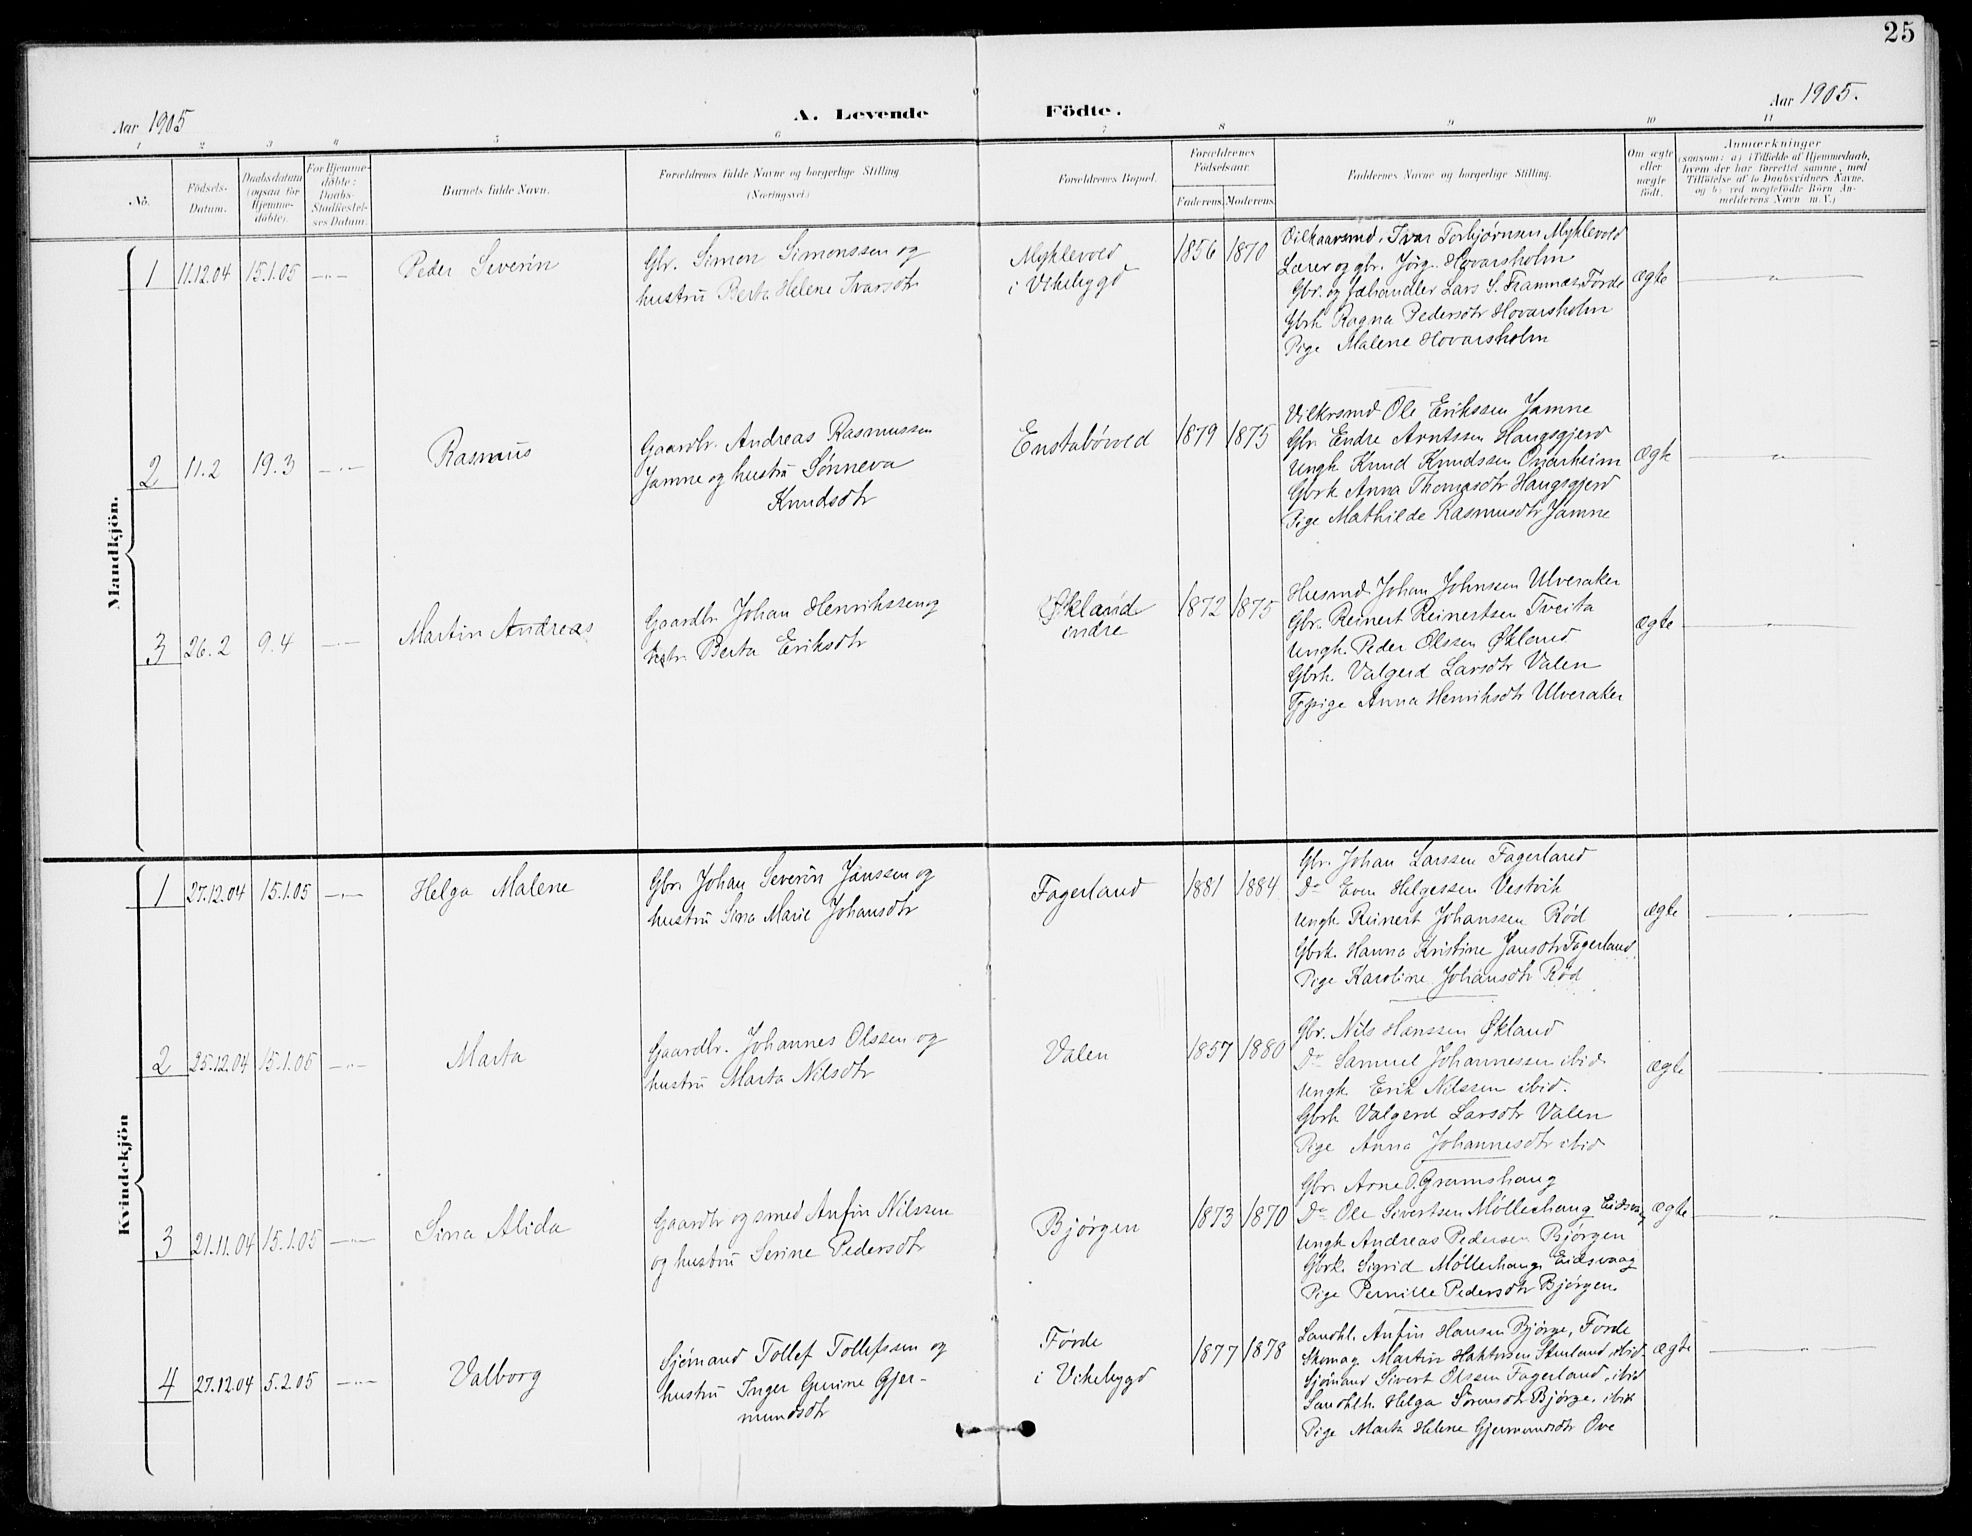 25
Aar 1905
A. Levende Födte.
Aar 1905.
1 2 3 4 5 6 7 8 9 10 11
No.
Födsels-Datum.
Daabsdatum (ogsaa for Hjemmedöbte).
For Hjemmedöbte: Daabs Stadfæstelses Datum.
Barnets fulde Navn.
Forældrenes fulde Navne og borgerlige Stilling (Næringsvei)
Forældrenes Bopæl.
Forældrenes Födselsaar.
Faderens. Moderens.
Faddernes Navne og borgerlige Stilling.
Om ægte eller uægte födt.
Anmærkninger
(saasom: a) i Tilfælde af Hjemmedaab,
hvem der har forrettet samme, med
Tilföielse af to Daabsvidners Navne,
og b) ved uægtefödte Börn Anmelderens Navn m.V.)
Mandkjön.
1 11.12.04 15.1.05 —"—
Peder Severin
Gbr. Simon Simonssen og
hustru Berta Helene Ivarsdtr
Myklevold
i Vikebygd
1856 1870
Vilkaarsmd. Ivar Torbjørnsen Myklevold
Lærer og gbr. Jörg. Hovarsholm
Gbr. og fæhandler Lars S. Framnæs, Förde
Gbrk Ragna Pedersdtr Hovarsholm
Pige Malene Hovarsholm
ægte
—"—
2 11.2 19.3 —"—
Rasmus
Gaardbr. Andreas Rasmussen
Jamne og hustru Sønneva
Knudsdtr
Enstabövold
1879 1875
Vilkrsmd Ole Erikssen Jamne
Gbr. Endre Arntssen Haugsgjerd
Ungk Knud Knudssen Onarheim
Gbrk Anna Thomasdtr Haugsgjerd
Pige Mathilde Rasmusdtr Jamne
ægte
—"—
3 26.2 9.4 —"—
Martin Andreas
Gaardbr. Johan Henrikssen og
hstr. Berta Eriksdtr
Økland
indre
1872 1875
Husmd Johan Johnsen Ulveraker
Gbr. Reinert Reinertsen Tveita
Ungk. Peder Olssen Økland
Gbrk. Valgerd Larsdtr Valen
Tjpige Anna Henriksdtr Ulveraker
ægte
—"—
Kvindekjön
1 27.12.04 15.1.05 —"—
Helga Malene
Gbr. Johan Severin Janssen og
hustru Sina Marie Johansdtr
Fagerland
1881 1884
Gbr. Johan Larssen Fagerland
Do Even Helgessen Vestvik
Ungk Reinert Johanssen Rød
Gbrk. Hanna Kristine Jansdtr Fagerland
Pige Karoline Johansdtr Rød
ægte
—"—
2 25.12.04 15.1.05 —"—
Marta
Gaardbr. Johannes Olssen og
hustru Marta Nilsdtr
Valen
1857 1880
Gbr. Nils Hanssen Økland
Do Samuel Johannessen ibid.
Ungk Erik Nilssen ibid.
Gbrk Valgerd Larsdtr Valen
Pige Anna Johannesdtr ibid
ægte
—"—
3 21.11.04 15.1.05 —"—
Sina Alida
Gaardbr og smed Anfin Nilssen
og hustru Serine Pedersdtr
Bjørgen
1873 1870
Gbr. Arne O. Gramshaug
Do Ole Sivertsen Møllerhaug Eidsvaag
Ungk Andreas Pedersen Bjørgen
Gbrk. Sigrid Møllerhaug Eidsvaag
Pige Pernille Pedersdtr Bjørgen.
ægte
—"—
4 27.12.04 5.2.05 —"—
Valborg
Sjømand Tollef Tollefssen og
hustru Inger Gurine Gjermundsdtr
Førde
i Vikebygd
1877 1878
Landhl. Anfin Hansen Bjørge, Førde
Skomag. Martin ibid.
Sjømand Sivert Olssen Fagerland, ibid
Landhlk. Helga Sørensdtr Bjørge, ibid
Pige Marta Helene Gjermundsdtr Ove
ægte
—"—